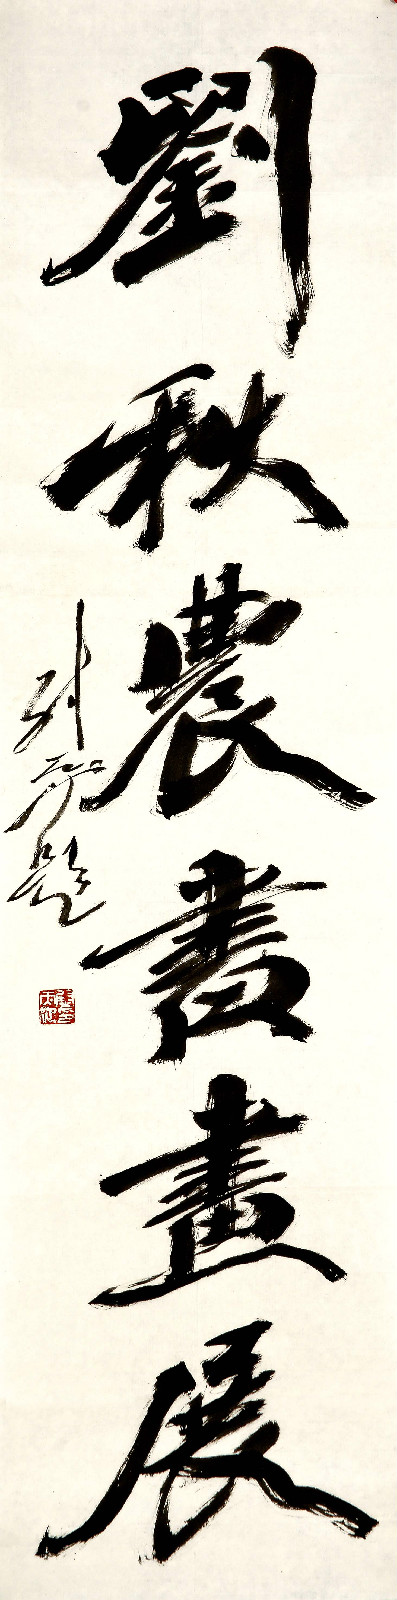 劉秋農書畫展
題